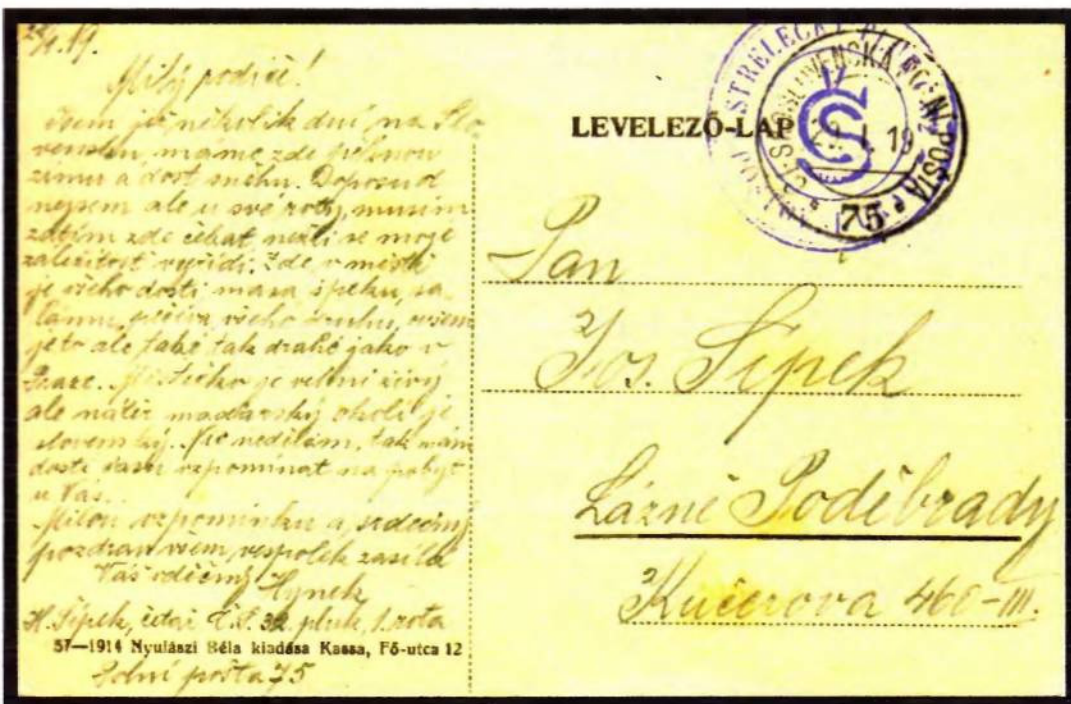 Milý podiči!
Jsem již několik dní na Slo
vensku, máme zde pěknou
zimu a dost sněhu. Doposud
nejsem ale u své roty, musím
zatím zde čekat nežli se moje
záležitost vyřídí. Zde v městě
je všeho dosti masa špeku, sa
lámu, pečiva, všeho druhu, ovšem
je to ale také tak drahé jako v
Praze. Městečko je velmi živý
ale nátěr maďarský okolí je
slovenský. Nic nedělám, tak mám
dosti času vzpomínat na pobyt
u Vás.
Milou vzpomínku a srdečný
pozdrav všem vespolek zasílá
Váš vděčný Hynek
H. Šípek, četař Č.S. 32. pluk, 1. rota
57—1914 Nyulászi Béla kiadása Kassa, Fő-utca 12
Polní pošta 75
LEVELEZŐ-LAP
ČS
STRELECKÝ
POLNÍ POŠTA
75
Pan
Jos. Šípek
Lázně Poděbrady
Kučerova 460-III.